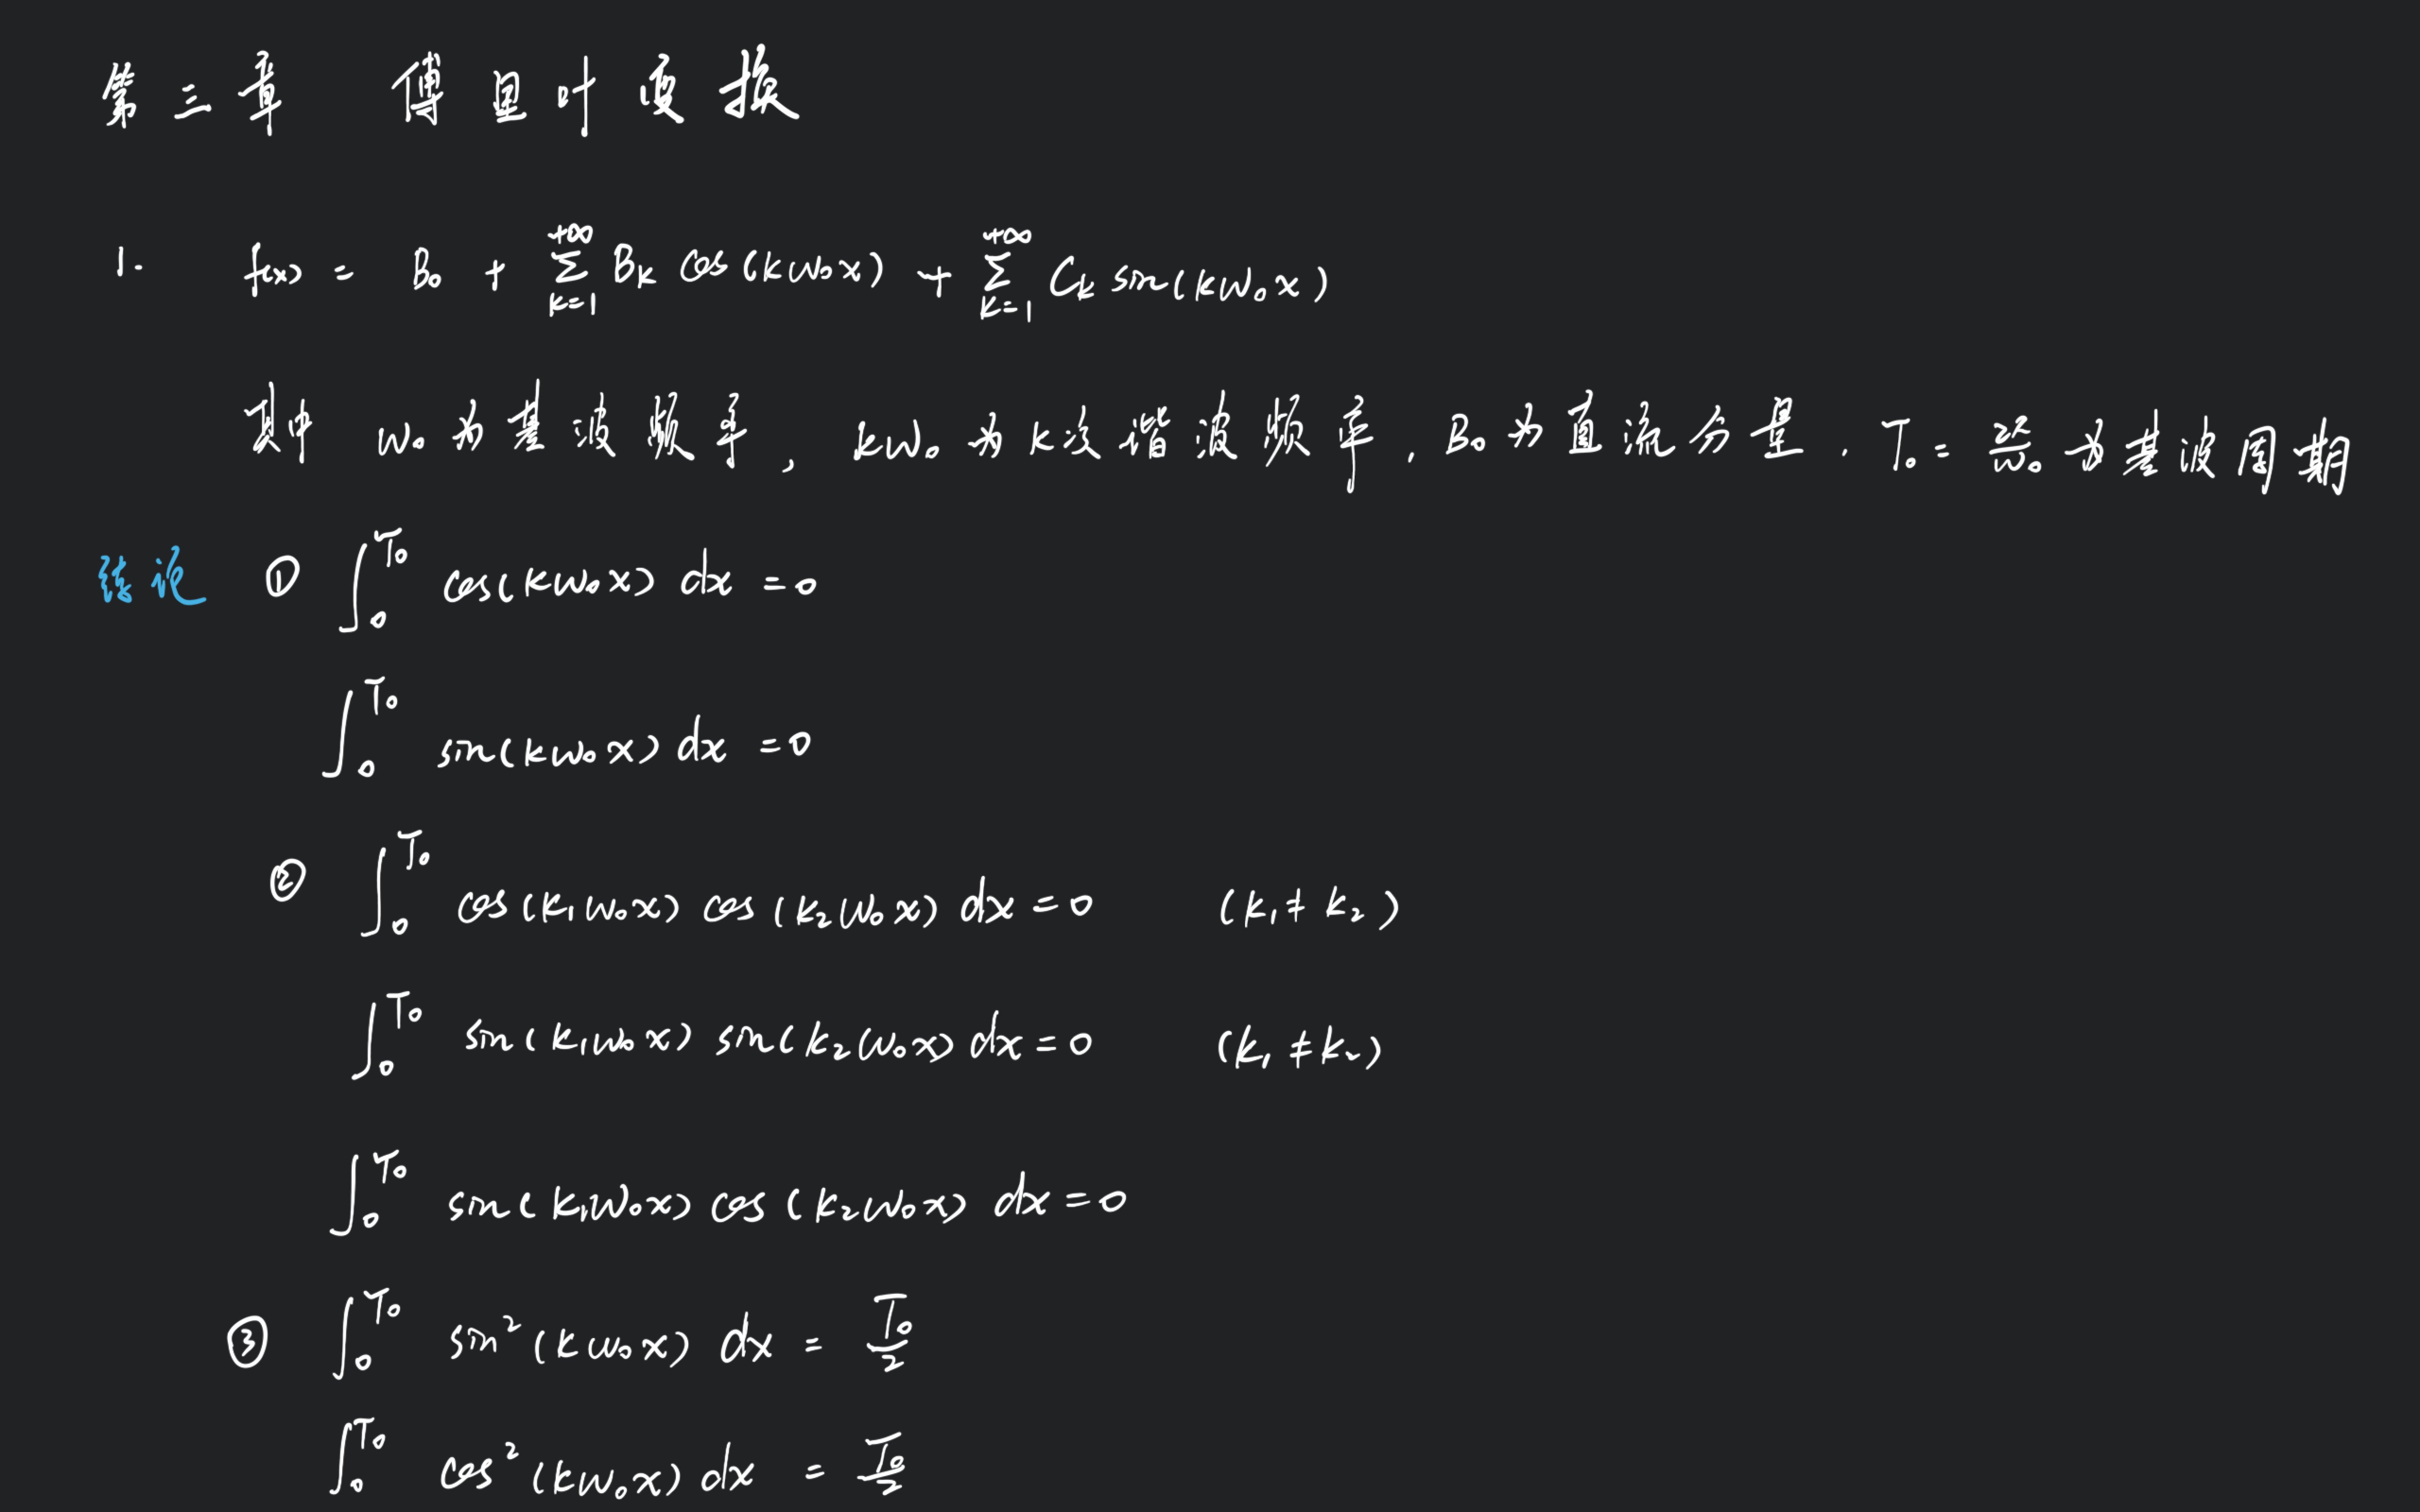 第三章 傅里叶变换
1. f(x) = B₀ + ∑_{k=1}^{+∞} Bₖ cos(kω₀x) + ∑_{k=1}^{+∞} Cₖ sin(kω₀x)
其中 ω₀为基波频率, kω₀为k次谐波频率, B₀为直流分量, T₀ = 2π/ω₀ 为基波周期
结论 ① ∫₀^{T₀} cos(kω₀x) dx = 0
∫₀^{T₀} sin(kω₀x) dx = 0
② ∫₀^{T₀} cos(k₁ω₀x) cos(k₂ω₀x) dx = 0 (k₁ ≠ k₂)
∫₀^{T₀} sin(k₁ω₀x) sin(k₂ω₀x) dx = 0 (k₁ ≠ k₂)
∫₀^{T₀} sin(k₁ω₀x) cos(k₂ω₀x) dx = 0
③ ∫₀^{T₀} sin²(kω₀x) dx = T₀/2
∫₀^{T₀} cos²(kω₀x) dx = T₀/2